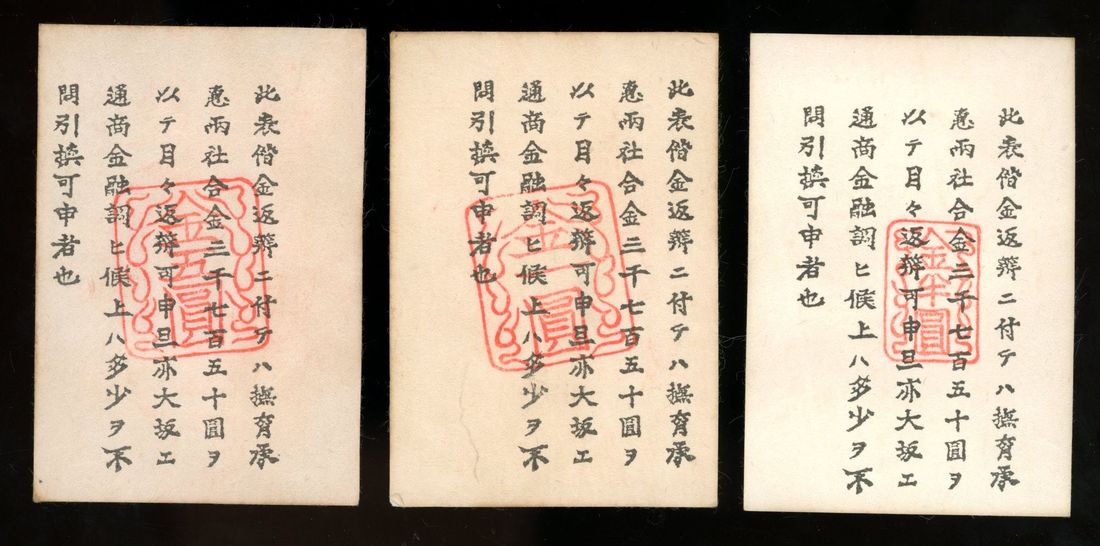 此表偕金返辨ニ付テハ撫育承
惠兩社合金三千七百五十圓ヲ
以テ月々返辨可申且亦大坂エ
通商金融調ヒ候上ハ多少ヲ不
問引換可申者也
金五圓
此表偕金返辨ニ付テハ撫育承
惠兩社合金三千七百五十圓ヲ
以テ月々返辨可申且亦大坂エ
通商金融調ヒ候上ハ多少ヲ不
問引換可申者也
金一圓
此表偕金返辨ニ付テハ撫育承
惠兩社合金三千七百五十圓ヲ
以テ月々返辨可申且亦大坂エ
通商金融調ヒ候上ハ多少ヲ不
問引換可申者也
金半圓